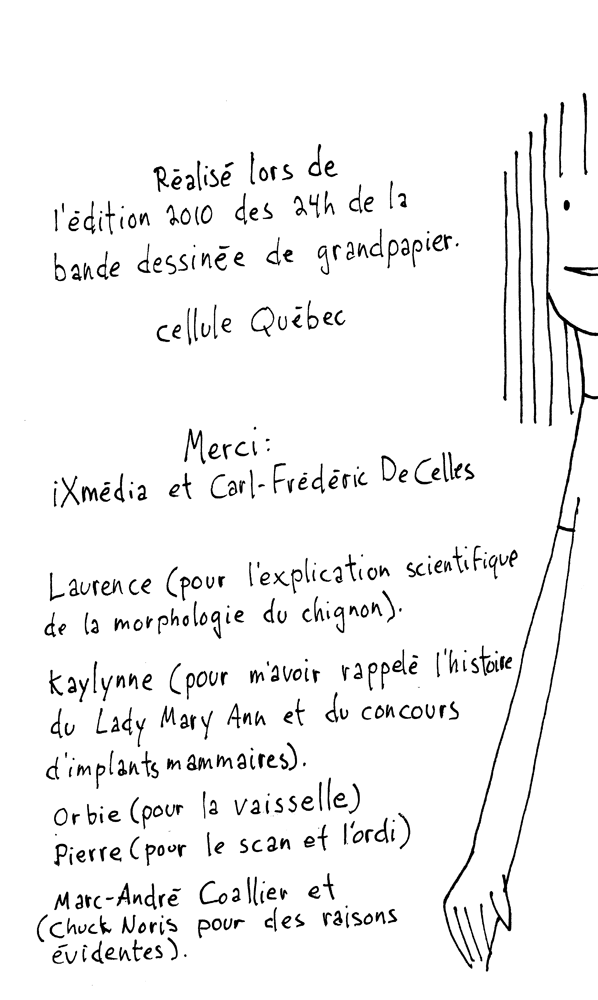 Réalisé lors de
l'édition 2010 des 24h de la
bande dessinée de grandpapier.
cellule Québec
Merci:
iXmédia et Carl-Frédéric DeCelles
Laurence (pour l'explication scientifique
de la morphologie du chignon).
Kaylynne (pour m'avoir rappelé l'histoire
du Lady Mary Ann et du concours
d'implants mammaires).
Orbie (pour la vaisselle)
Pierre (pour le scan et l'ordi)
Marc-André Coallier et
(Chuck Noris pour des raisons
évidentes).